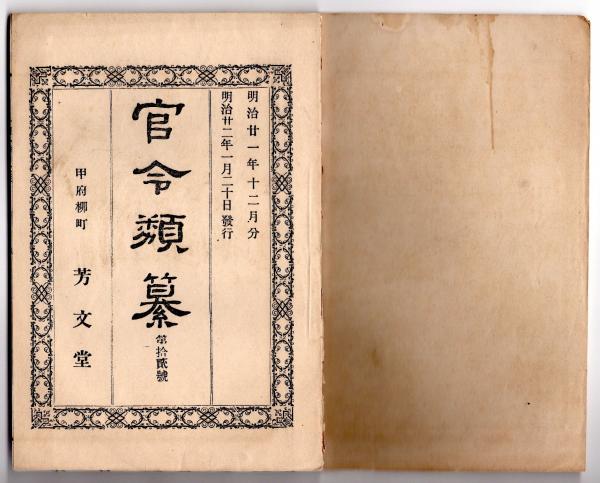 明治廿一年十二月分
明治廿二年一月二十日發行
官令類纂 第拾貳號
甲府柳町 芳文堂